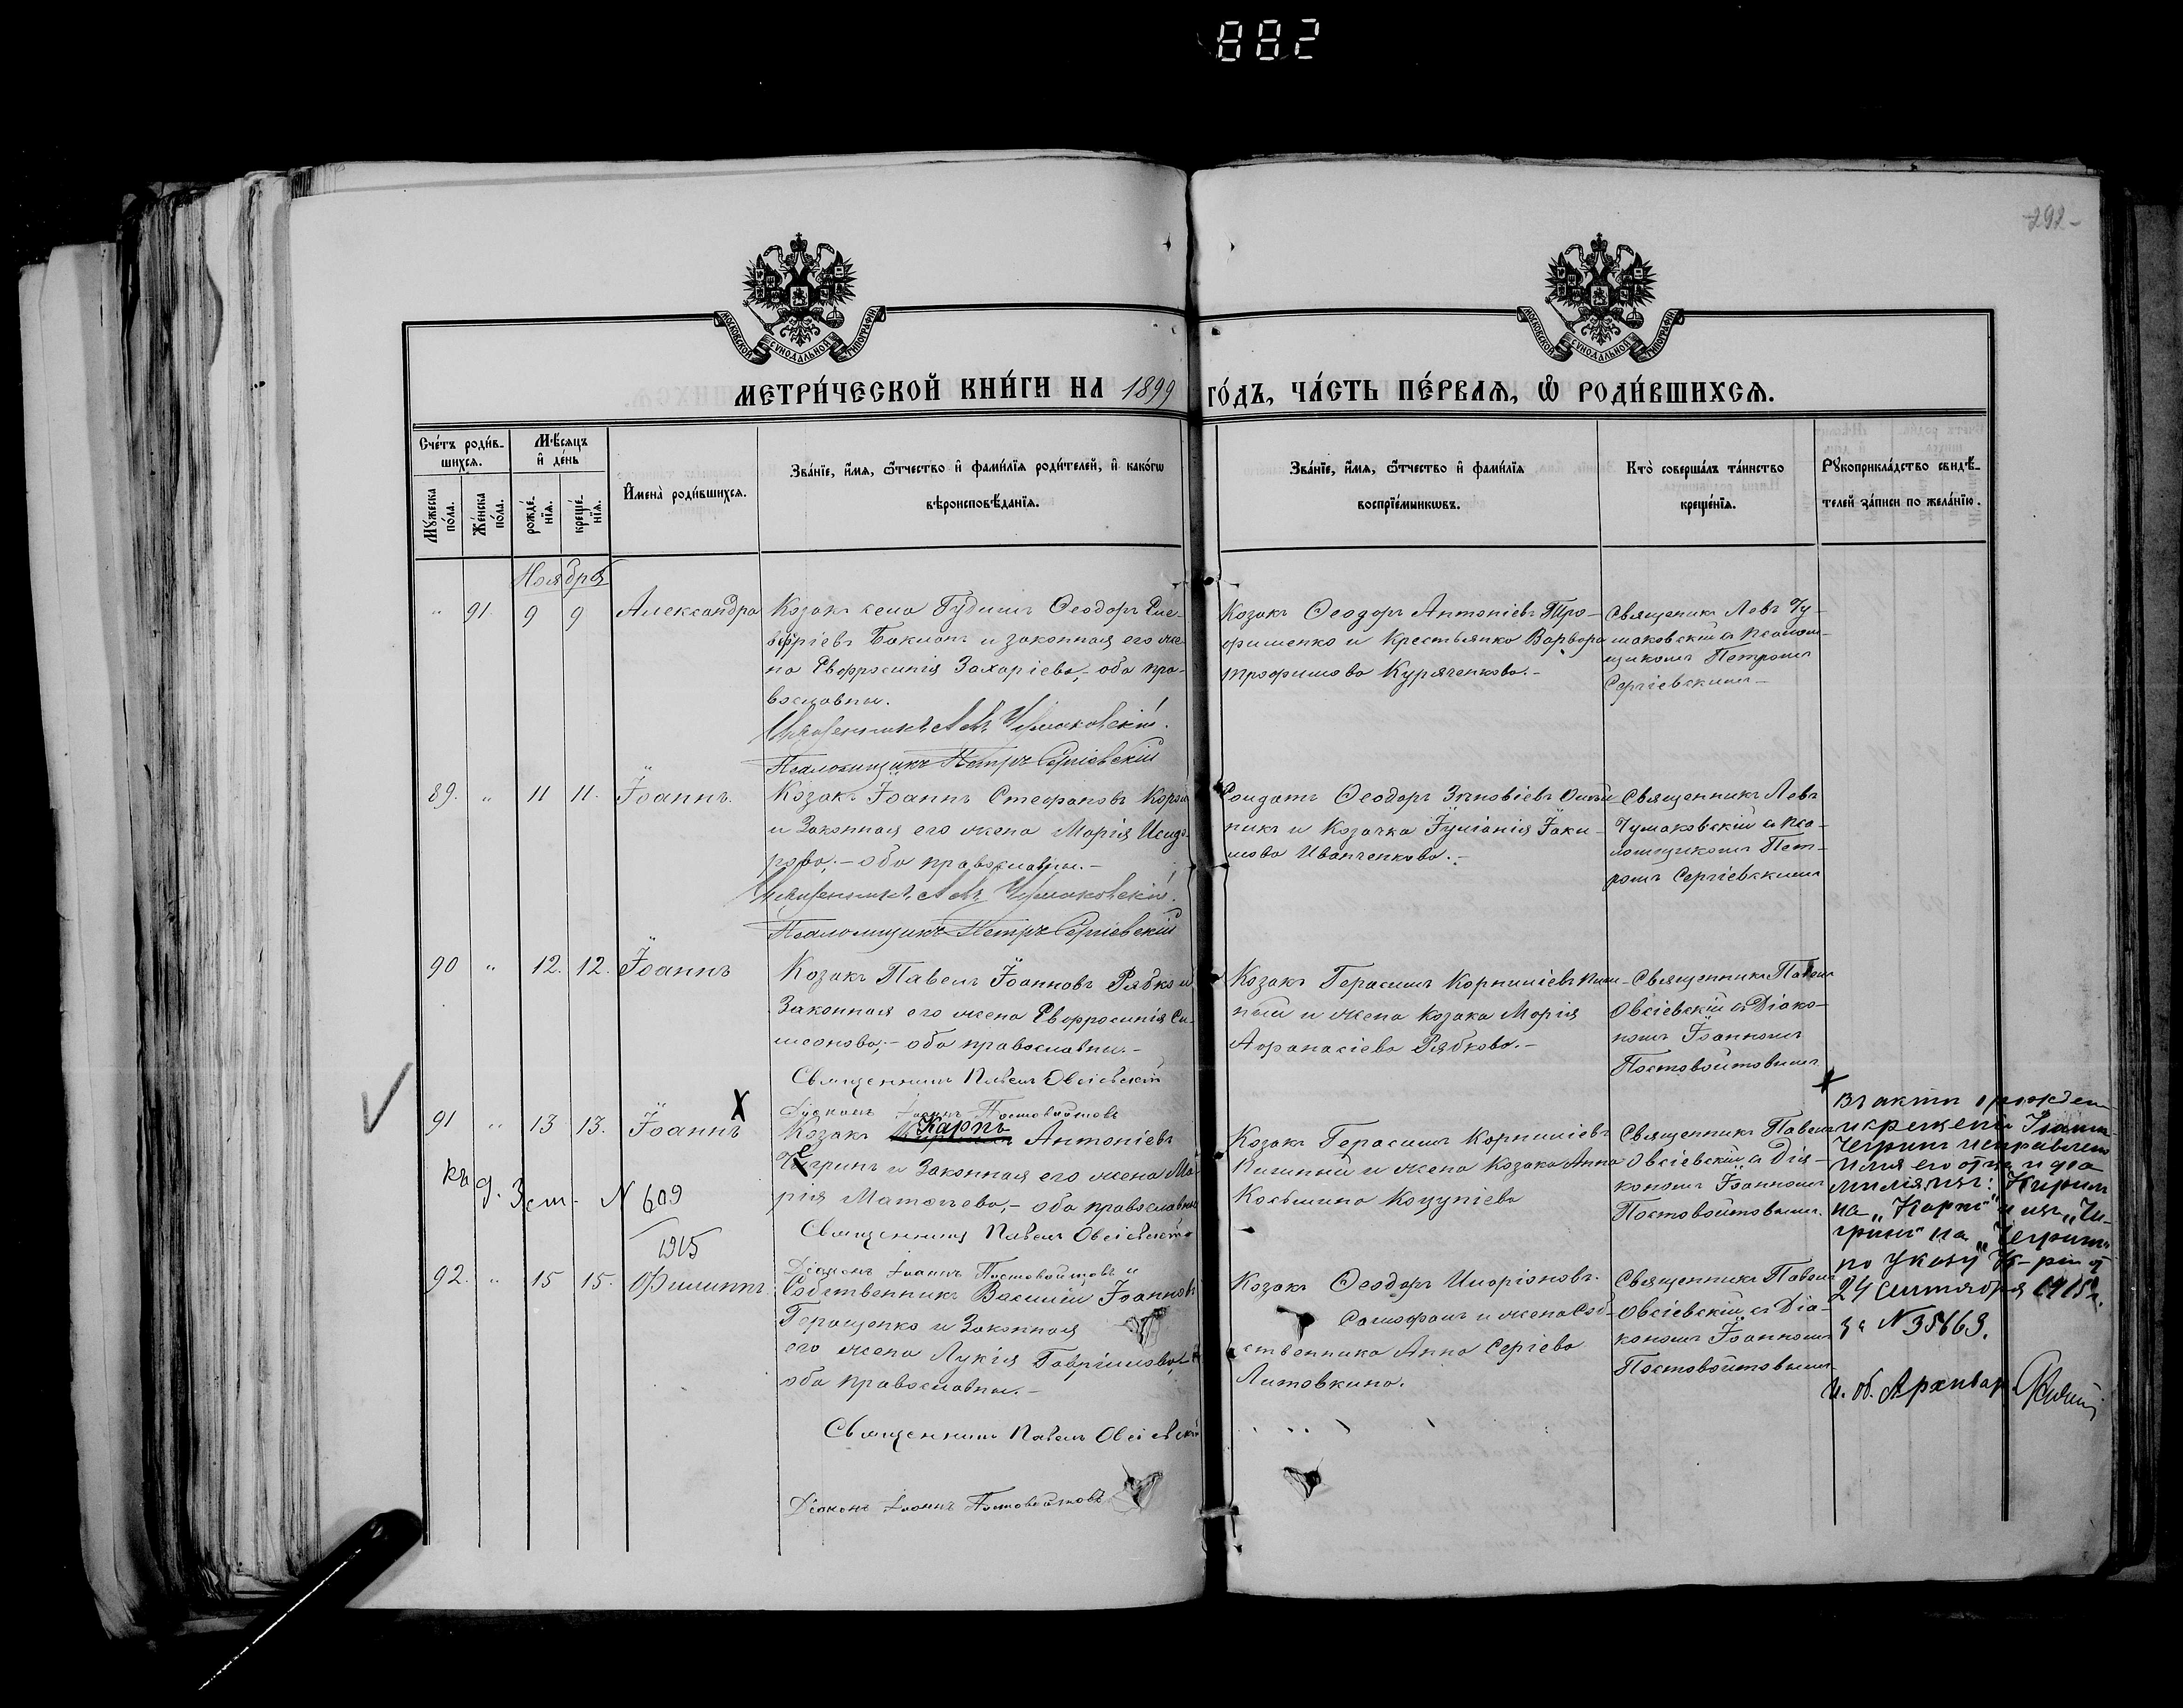 882
292-
МОСКОВСКОЙ СУНОДАЛЬНОЙ ТИПОГРАФІИ
МОСКОВСКОЙ СУНОДАЛЬНОЙ ТИПОГРАФІИ
МЕТРИ́ЧЕСКОЙ КНИ́ГИ НА 1899 ГО́ДЪ, ЧА́СТЬ ПЕ́РВАѦ, Ѡ҆ РОДИ́ВШИХСѦ.
Сче́тъ роди́в-
шихсѧ.
Мѣ́сѧцъ
и҆ де́нь
Мꙋ́жеска
по́ла.
Же́нска
по́ла.
рожде́-
нїѧ.
креще́-
нїѧ.
И҆мена̀ роди́вшихсѧ.
Зва́нїе, и҆́мѧ, ѻ҆́тчество и҆ фами́лїѧ роди́телей, и҆ како́гѡ
вѣроисповѣ́данїѧ.
Зва́нїе, и҆́мѧ, ѻ҆́тчество и҆ фами́лїѧ
воспрїе́мникѡвъ.
Кто̀ соверша́лъ та́инство
креще́нїѧ.
Рꙋкоприкла́дство свидѣ́-
телей за́писи по жела́нїю.
Ноября
" 91. 9 9 Александра
Козакъ села Гудимъ Ѳеодоръ Еле-
вѳріевъ Бакланъ и законная его же-
на Евфросинія Захаріева,- оба пра-
вославны.
Священникъ Левъ Чумаковскій.
Псаломщикъ Петръ Сергіевскій
Козакъ Ѳеодоръ Антоніевъ Тро-
фименко и Крестьянка Варвара
Трофимова Куряченкова.-
Священикъ Левъ Чу-
маковскій съ псалом-
щикомъ Петромъ
Сергіевскимъ-
89. " 11 11. Іоаннъ.
Козакъ Іоаннъ Стефановъ
и Законная его жена Марія Исидо-
рова,- оба православны.-
Священникъ Левъ Чумаковскій.
Псаломщикъ Петръ Сергіевскій
Солдатъ Ѳеодоръ Зѣновіевъ
никъ и Козачка Іуліанія Іаки-
мова Иванченкова.-
Священникъ Левъ
Чумаковскій съ пса-
ломщикомъ Пет-
ромъ Сергіевскимъ
90 " 12. 12. Іоаннъ
Козакъ Павелъ Іоанновъ Рябко и
Законная его жена Евфросинія Си-
меонова,- оба православны.-
Священникъ Павелъ Овсіевскій
Діаконъ Іоаннъ Постовойтовъ
Козакъ Герасимъ Корниліевъ
и жена козака Марія
Аѳанасіева Рябкова.-
Священникъ Павелъ
Овсіевскій съ Діако-
номъ Іоанномъ
Постовойтовымъ
91 " 13 13. Іоаннъ X
Козакъ Карпъ Антоніевъ
Чегринъ и Законная его жена Ма-
рія Матѳеева,- оба православны
Священникъ Павелъ Овсіевскій
Діаконъ Іоаннъ Постовойтовъ
къ д. 3 ст- N 609
1915
Козакъ Герасимъ Корниліевъ
и жена Козака Анна
Косьмина Коцупіева
Священникъ Павелъ
Овсіевскій съ Діа-
кономъ Іоанномъ
Постовойтовымъ.
X
Въ актѣ о рожден
и крещеніи Іоанна
Чегринъ исправлено
имя его отца и фа-
милія изъ: „Кирил
на „Карпъ" и изъ „Чи-
гринъ" на „Чегринъ"
по указу К-ріи отъ
24 сентября 1915г.
за N 35463.
И. об. Архивар.
92. " 15 15. Филиппъ.
Собственникъ Василій Іоанновъ
Геращенко и Законная
его жена Лукія Гавріилова,-
оба православны.-
Священникъ Павелъ Овсіевскій
Діаконъ Іоаннъ Постовойтовъ
Козакъ Ѳеодоръ Иларіоновъ.
и жена соб-
ственника Анна Сергіева
Литовкина.
Священникъ Павелъ
Овсіевскій съ Діа-
кономъ Іоанномъ
Постовойтовымъ-